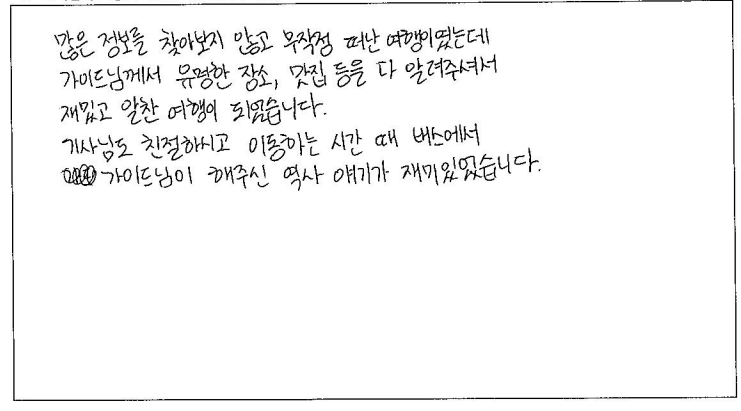 많은 정보를 찾아보지 않고 무작정 떠난 여행이였는데
가이드님께서 유명한 장소, 맛집 등을 다 알려주셔서
재밌고 알찬 여행이 되었습니다.
기사님도 친절하시고 이동하는 시간 때 버스에서
가이드님이 해주신 역사 얘기가 재미있었습니다.